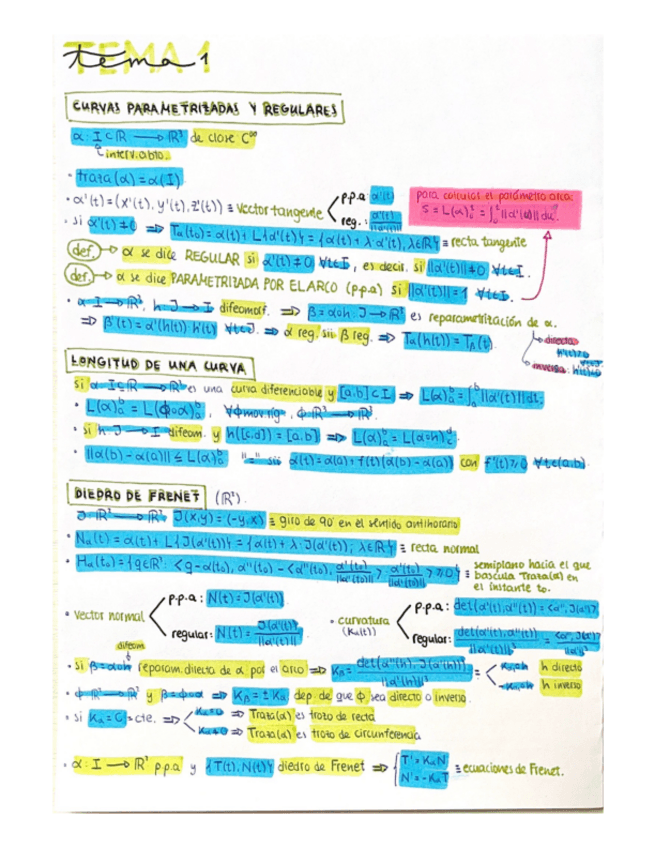 TEMA 1
tema 1
CURVAS PARAMETRIZADAS Y REGULARES
α: I⊂ℝ → ℝ³ de clase C^∞
interv. abto.
· traza(α) = α(I)
· α'(t) = (x'(t), y'(t), z'(t)) ≡ vector tangente
p.p.a: α'(t)
reg.: α'(t)/||α'(t)||
para calcular el parámetro arco:
· si α'(t) ≠ 0 ⇒ Tα(t₀) = α(t) + L{α'(t)} = {α(t) + λ·α'(t), λ∈ℝ} ≡ recta tangente
def. → α se dice REGULAR si α'(t) ≠ 0 ∀t∈I, es decir, si ||α'(t)|| ≠ 0 ∀t∈I.
def. → α se dice PARAMETRIZADA POR EL ARCO (p.p.a) si ||α'(t)|| = 1 ∀t∈I.
· α: I → ℝ³, h: J → I difeomorf. ⇒ β = α∘h: J → ℝ³ es reparametritación de α.
⇒ β'(t) = α'(h(t))·h'(t) ∀t∈J. ⇒ α reg. sii β reg. ⇒ Tα(h(t)) = Tβ(t).
directa:
inversa:
LONGITUD DE UNA CURVA
si α: I⊂ℝ → ℝ³ es una curva diferenciable y [a,b]⊂I ⇒ L(α)ₐᵇ = ∫ₐᵇ ||α'(t)|| dt.
· L(α)ₐᵇ = L(ϕ∘α)ₐᵇ, ∀ϕ mov. ríg., ϕ: ℝ³ → ℝ³.
· si h: J → I difeom. y h([c,d]) = [a,b] ⇒ L(α)ₐᵇ = L(α∘h)
· ||α(b) - α(a)|| ≤ L(α)ₐᵇ "=" sii α(t) = α(a) + f(t)(α(b) - α(a)) con f'(t) ≥ 0 ∀t∈(a,b).
DIEDRO DE FRENET (ℝ²).
J: ℝ² → ℝ², J(x,y) = (-y,x) ≡ giro de 90° en el sentido antihorario
· Nα(t) = α(t) + L{J(α'(t))} = {α(t) + λ·J(α'(t)); λ∈ℝ} ≡ recta normal
semiplano hacia el que
bascula Traza(α) en
el instante t₀.
· vector normal
p.p.a: N(t) = J(α'(t))
regular: N(t) = J(α'(t))/||α'(t)||
· curvatura
(Kα(t))
p.p.a: det(α'(t), α''(t)) = <α'', J(α')>
regular: det(α'(t), α''(t))/||α'(t)||³ = <α'', J(α')>/||α'||³
difeom
· si β = α∘h reparam. directa de α por el arco ⇒
h directo
h inverso
· ϕ: ℝ² → ℝ² y β = ϕ∘α ⇒ Kβ = ±Kα dep. de que ϕ sea directo o inverso.
· si Kα = C = cte. ⇒
Kα = 0 ⇒ Traza(α) es trozo de recta
Kα ≠ 0 ⇒ Traza(α) es trozo de circunferencia
· α: I → ℝ² p.p.a y {T(t), N(t)} diedro de Frenet ⇒
T' = KαN
N' = -KαT
≡ ecuaciones de Frenet.